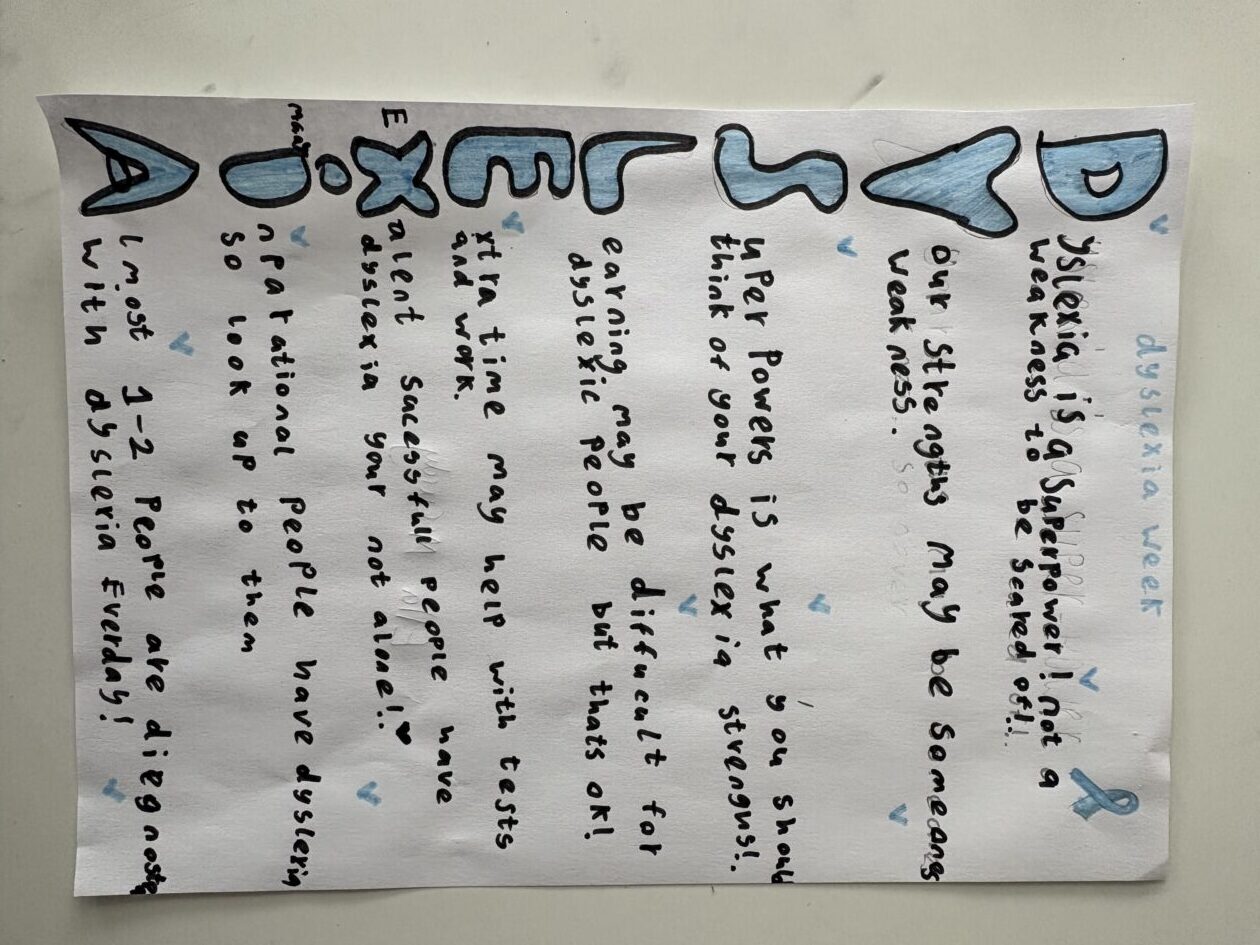 dyslexia week
Dyslexia is a superpower! not a
weakness to be scared of!.
Your strengths may be someones
weakness.
Super Powers is what you should
think of your dyslexia strengus!.
Learning may be diffucult for
dyslexic people but thats ok!
Extra time may help with tests
and work.
EXalent sucessfull people have
dyslexia your not alone!.
many Inparational people have dyslexia
so look up to them
Almost 1-2 people are diegnosted
with dyslexia Everday!